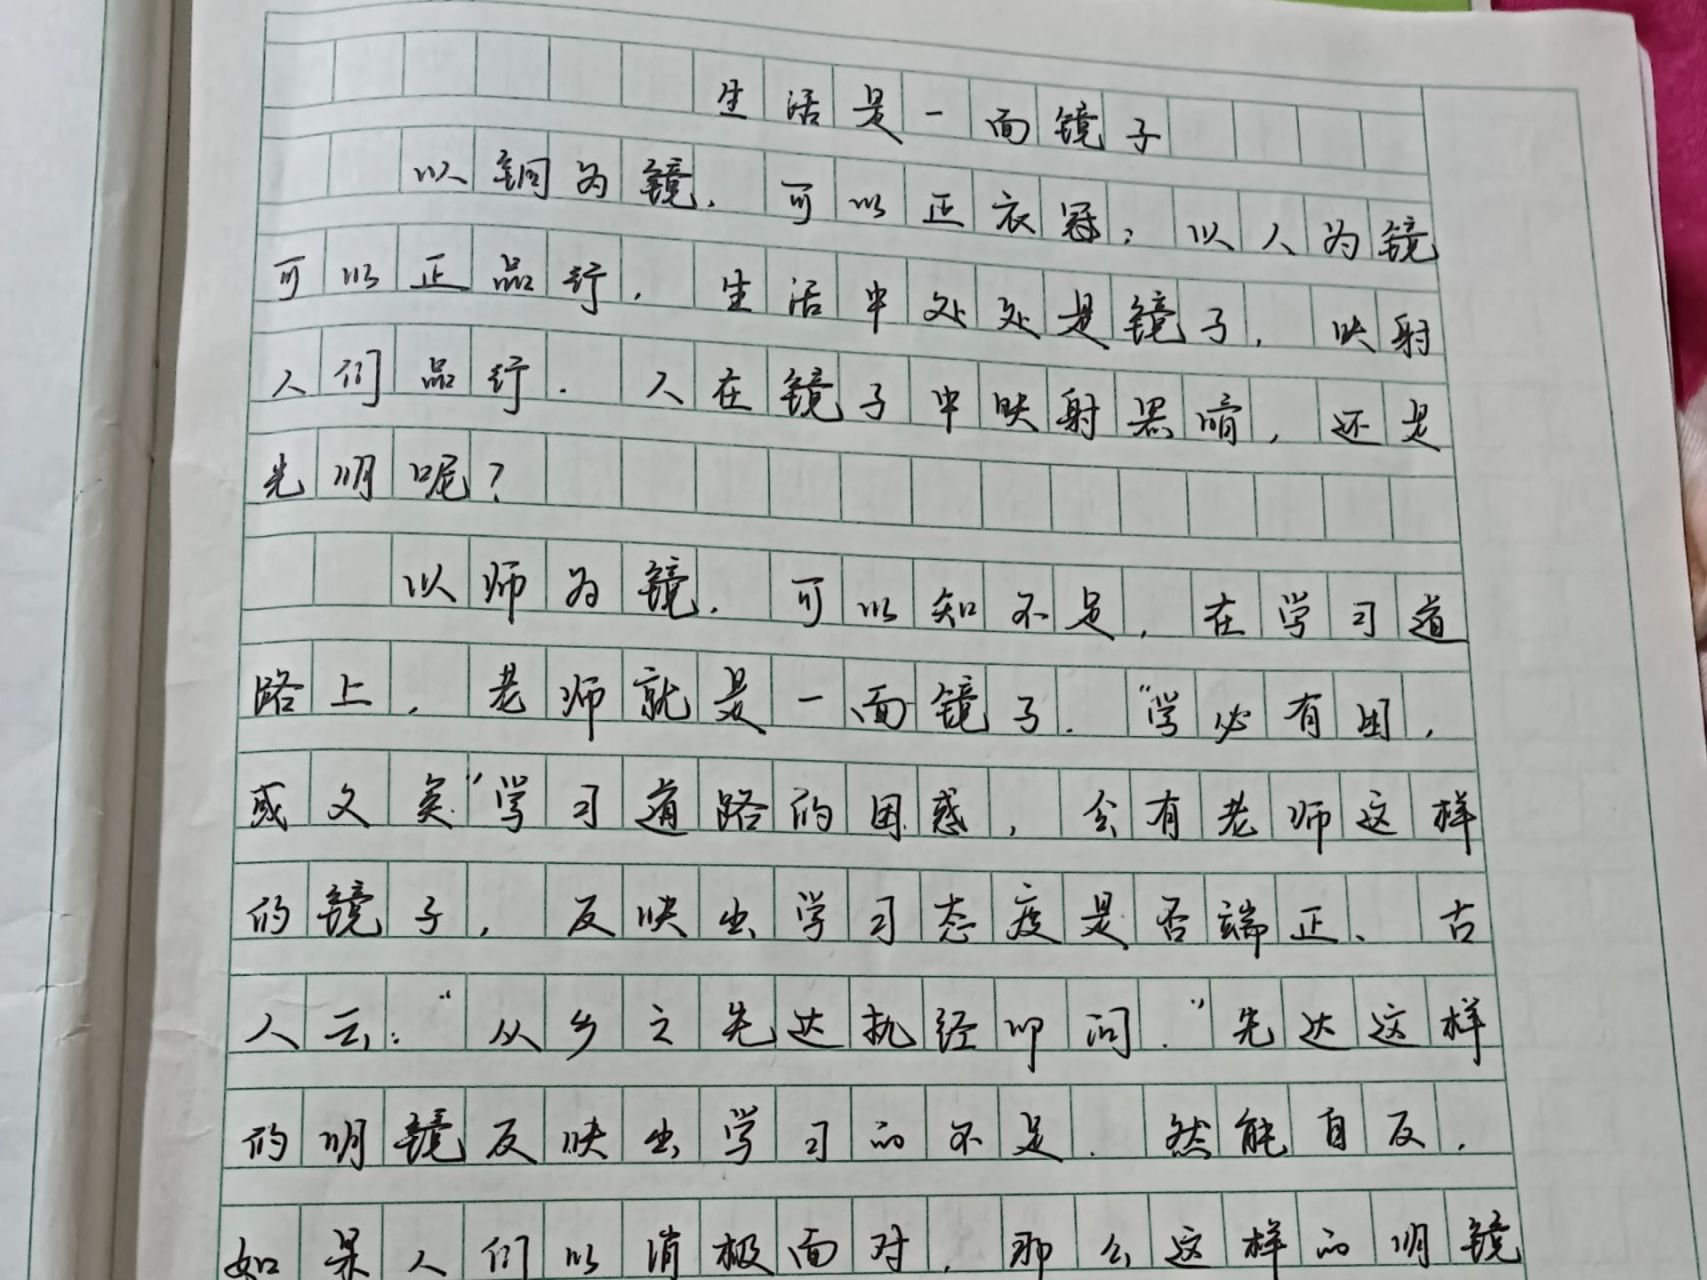 生活是一面镜子
以铜为镜，可以正衣冠；以人为镜
可以正品行，生活中处处是镜子，映射
人们品行．人在镜子中映射黑暗，还是
光明呢？
以师为镜，可以知不足，在学习道
路上，老师就是一面镜子．“学必有困，
或文矣”学习道路的困惑，会有老师这样
的镜子，反映出学习态度是否端正、古
人云：“从乡之先达执经叩问．”先达这样
的明镜反映出学习的不足．然能自反，
如果人们以消极面对，那么这样的明镜